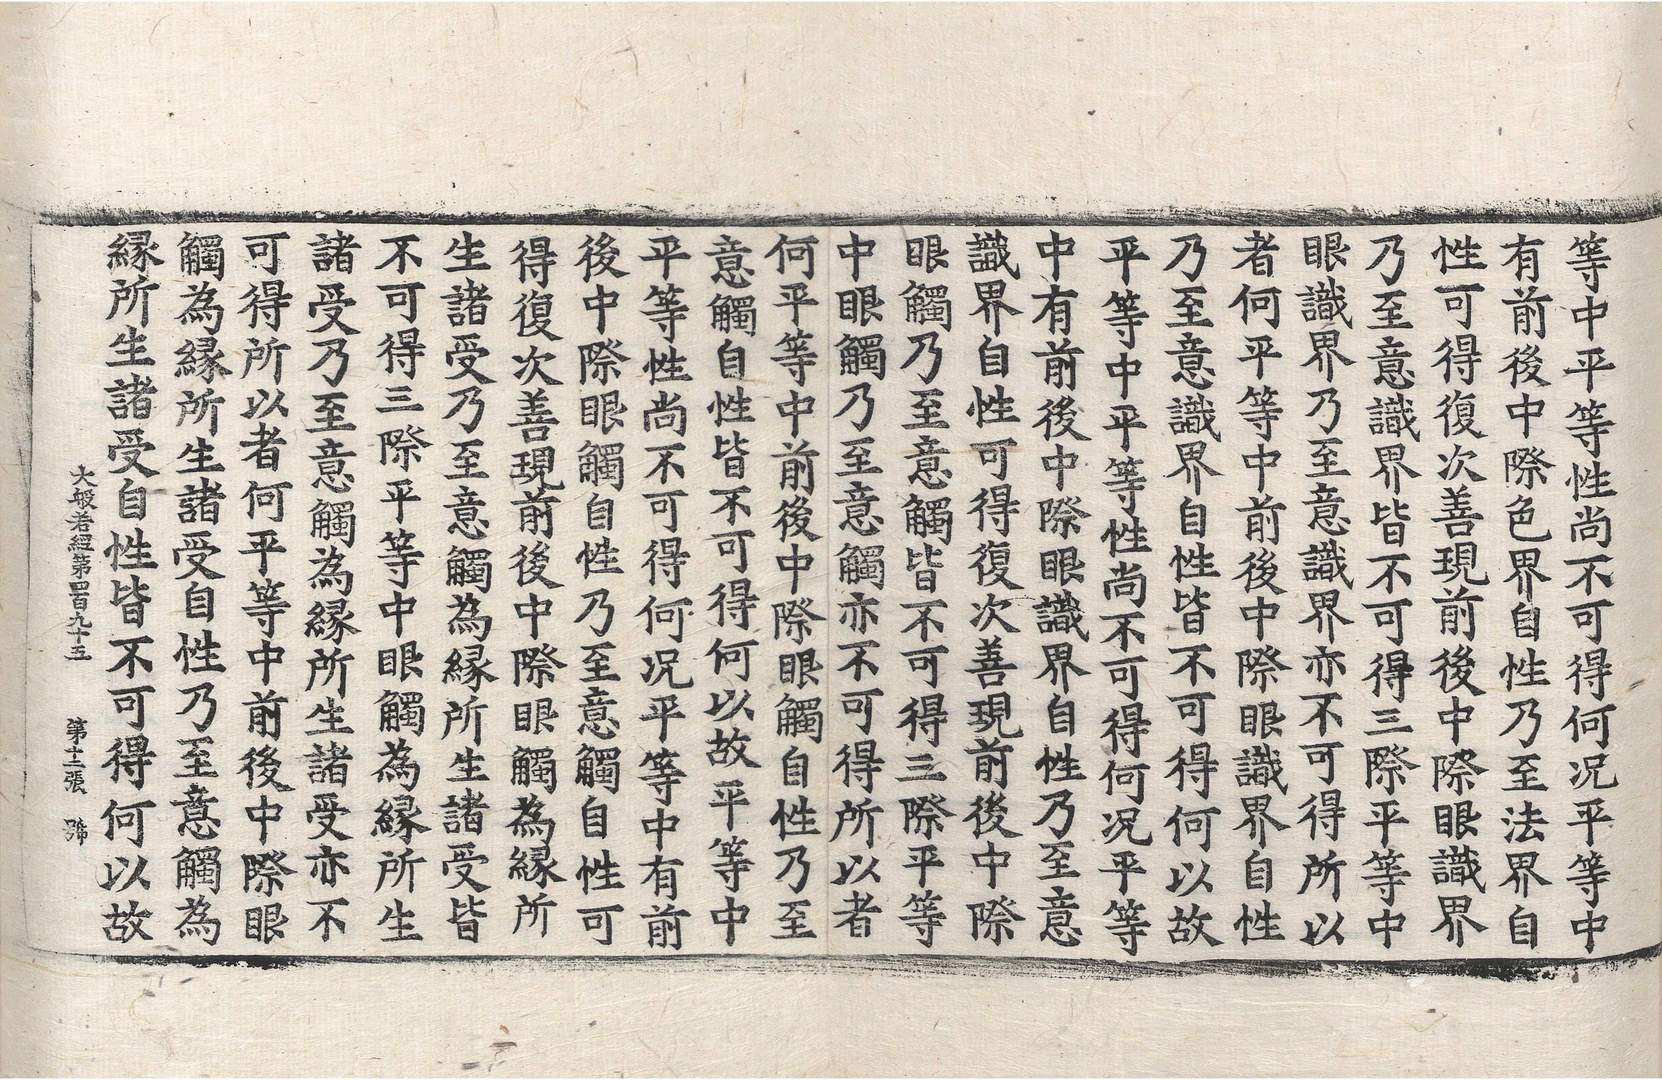 等中平等性尚不可得何况平等中
有前後中際色界自性乃至法界自
性可得復次善現前後中際眼識界
乃至意識界皆不可得三際平等中
眼識界乃至意識界亦不可得所以
者何平等中前後中際眼識界自性
乃至意識界自性皆不可得何以故
平等中平等性尚不可得何况平等
中有前後中際眼識界自性乃至意
識界自性可得復次善現前後中際
眼觸乃至意觸皆不可得三際平等
中眼觸乃至意觸亦不可得所以者
何平等中前後中際眼觸自性乃至
意觸自性皆不可得何以故平等中
平等性尚不可得何况平等中有前
後中際眼觸自性乃至意觸自性可
得復次善現前後中際眼觸為縁所
生諸受乃至意觸為縁所生諸受皆
不可得三際平等中眼觸為縁所生
諸受乃至意觸為縁所生諸受亦不
可得所以者何平等中前後中際眼
觸為縁所生諸受自性乃至意觸為
縁所生諸受自性皆不可得何以故
大般若經第四百九十五 第十二張 號